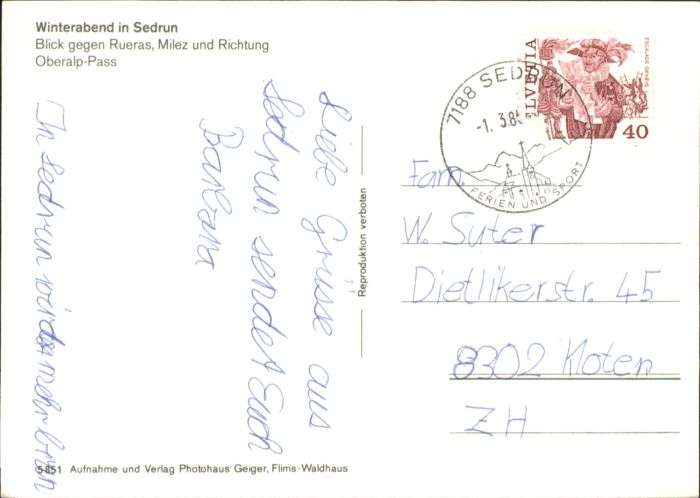 Winterabend in Sedrun
Blick gegen Rueras, Milez und Richtung
Oberalp-Pass
Liebe Grüsse aus
Sedrun sendet Euch
Barbara
In Sedrun wird mehr
Reproduktion verboten
7188 SEDRUN
-1. 3.85
FERIEN UND SPORT
HELVETIA
ESCALADE GENEVE
40
Fam.
W. Suter
Dietlikerstr. 45
8302 Kloten
ZH
5851 Aufnahme und Verlag Photohaus Geiger, Flims-Waldhaus